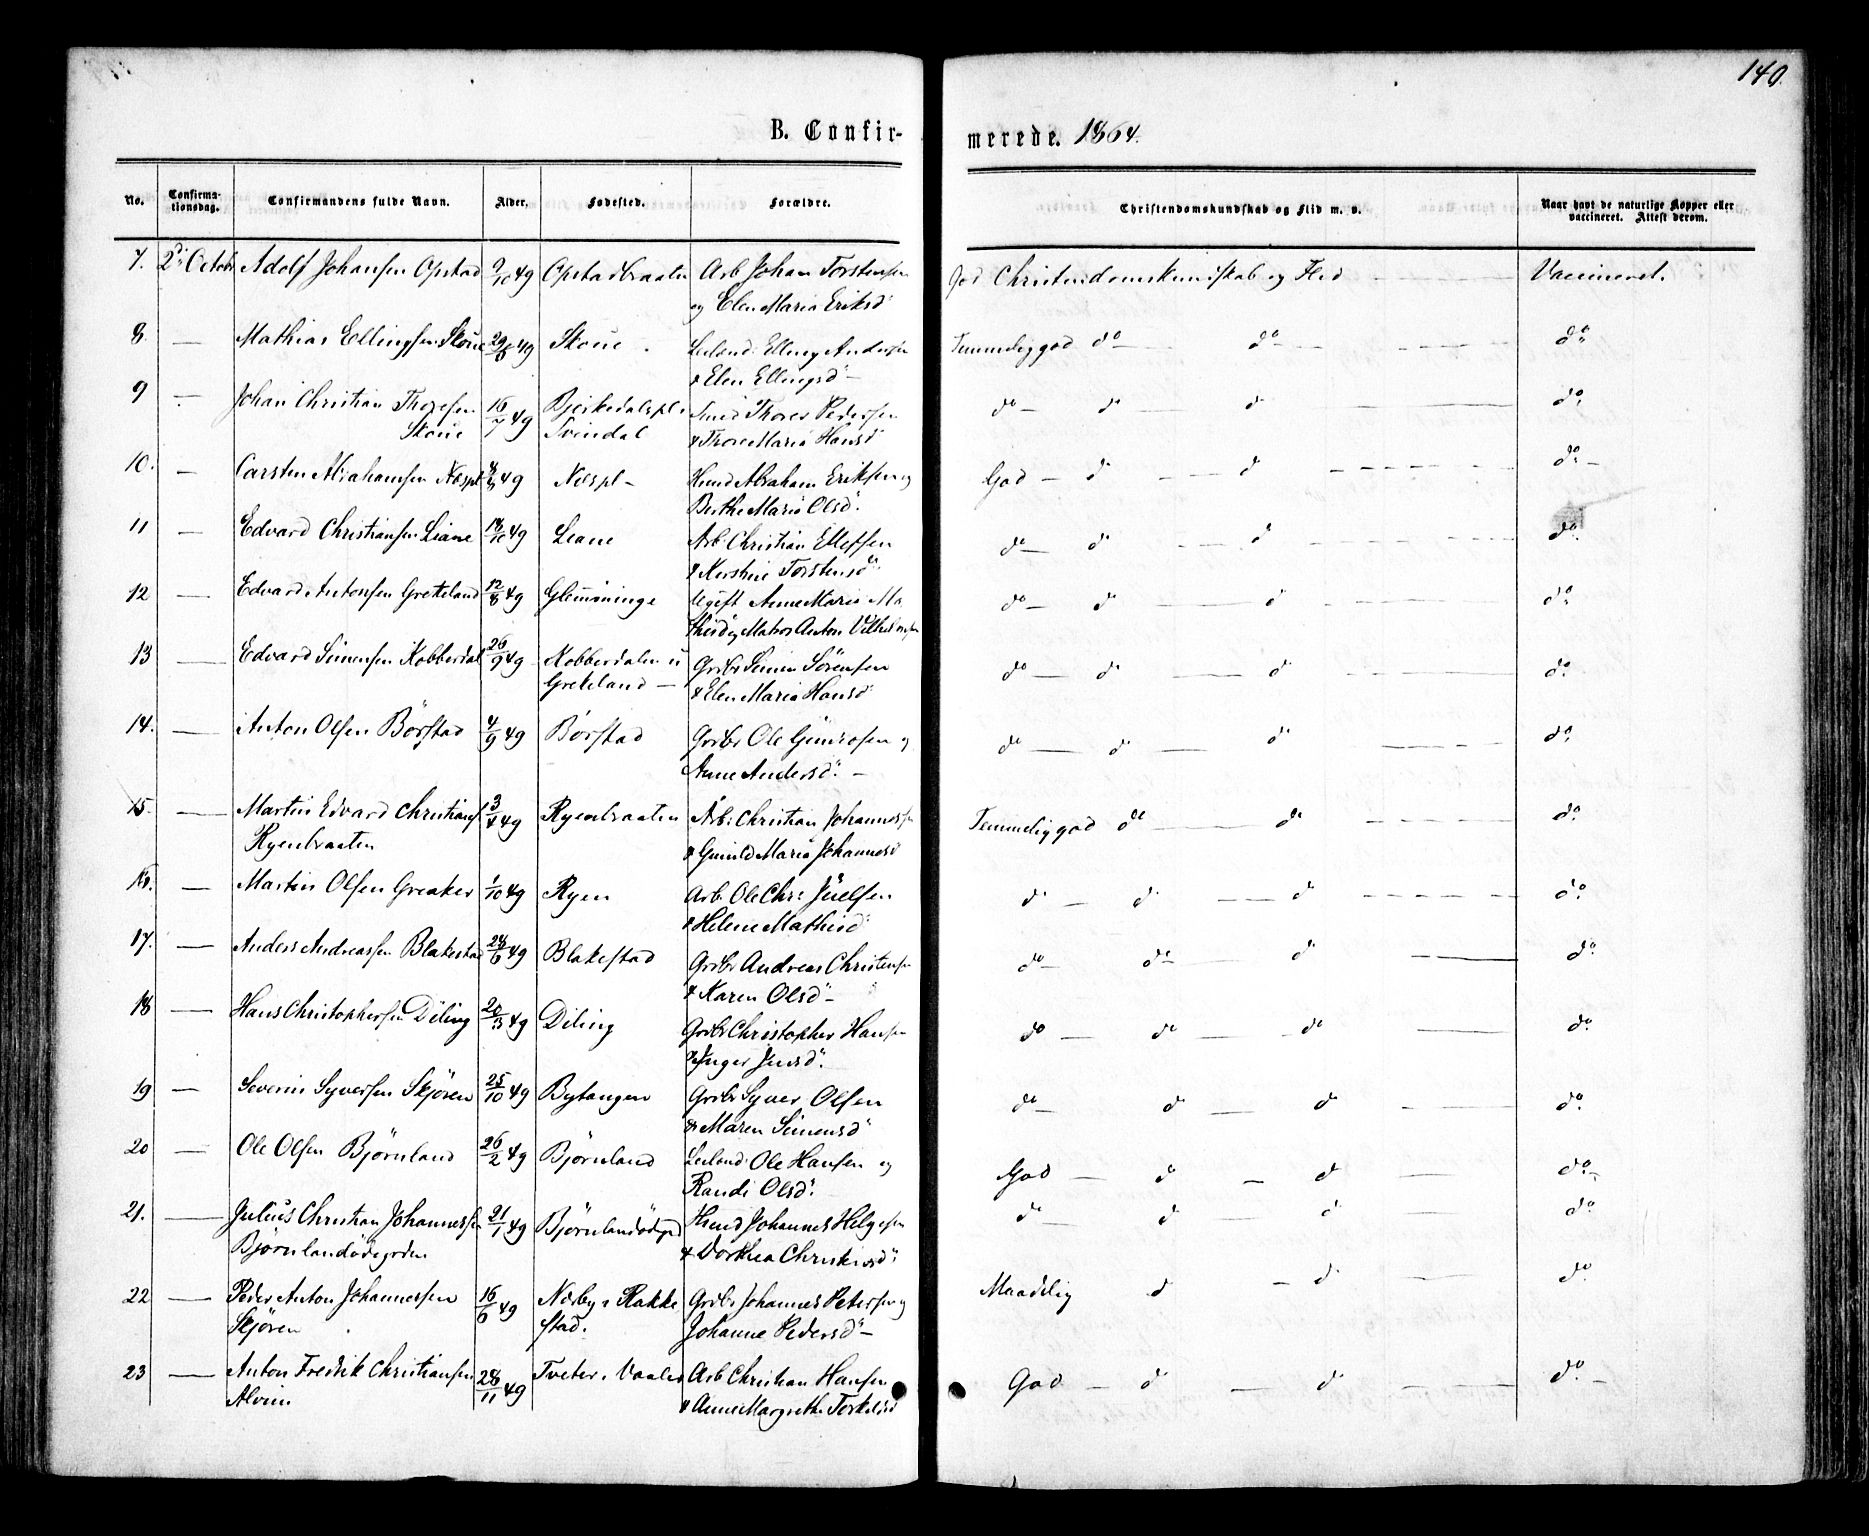 140.
B. Confir- merede. 1864.
No. Confirma-tionsdag. Confirmandens fulde Navn. Alder. Fødested. Forældre. Christendomskundskab og Flid m. v. Naar havt de naturlige Kopper eller vaccineret. Attest derom.
7. 2d. Octobr Adolf Johansen Opstad 9/10 49 Opstadbraaten Arb Johan Torstensen God Christendomskundskab og Flid — Vaccineret.
og Elen Maria Eriksd
8. — Mathias Ellingsen Skoue 29/8 49 Skoue. Leiland: Elling Andersen Temmelig god do — do — do
& Elen Ellingsd —
9 — Johan Christian Thoresen 16/7 49 Bjerkedalspl. Thores Pedersen do — do — do
Skoue Svindal & Thore Maria Hansd
10. — Carsten Abrahamsen Næspl 49 Næspl — Huusd Abraham Eriksen og God — do — do — do —
Berthe Maria Olsd.
11 — Edvard Christiansen Liane 18/10 49 Leane Arb: Christian Ellefsen do — do — do — do
& Kerstine Torstensd
12 — Edvard Antonsen Grekeland 12/8 49 Glemminge Ugift Anne Maria Ma do — do — do — do
og Matros Anton Vilhelmsen
13 — Edvard Simensen Kobberdal 26/9 49 Kobberdalen u Grdbr Simen Sörensen do — do — do — do
Grekeland — & Elen Maria Hansd
14. — Anton Olsen Börstad 4/9 49 Börstad Grdbr Ole Gundrosen og do — do — do — do
Anne Andersd. —
15. — Martin Edvard Christians 3/4 49 Ryenbraaten Arb: Christian Johannessen Temmelig god do — do — do
Ryenbraaten & Gunild Maria Johannesd
16. — Martin Olsen Greaker 1/10 49 Ryen Arb. Ole Chr: Juelsen do — do — do — do
& Helene Mathisd
17. — Anders Andreassen Blakestad 28/6 49 Blakestad Grdbr Andreas Christensen do — do — do — do
& Karen Olsd —
18 — Hans Christophersen Diling 20/3 49 Diling Grdbr Christopher Hansen do — do — do — do
& Inger Jensd.
19 — Severin Syversen Skjören 25/10 49 Bytangen Grdbr Syver Olsen do — do — do — do
& Maren Simensd
20 — Ole Olsen Björnland 26/2 49 Björnland Leiland: Ole Hansen og God — do — do — do —
Randi Olsd.
21. — Julius Christian Johannessen 21/1 49 Björnlandödegd Huusd Johannes Helgesen do — do — do — do
Björnlandödegrden & Dorthea Christiansd
22 — Peder Anton Johannessen 16/6 49 Nærby i Rakke Grdbr Johannes Petersen og Maadelig do — do — do
Skjören stad. Johanne Pedersd —
23 — Anton Fredrik Christiansen 28/11 49 Tveter i Vaaler Arb Christian Hansen God — do — do — do —
Alvim & Anne Margrethe Torkelsd